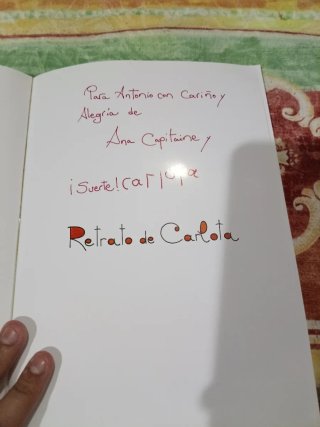 Para Antonio con Cariño y
Alegría de
Ana Capitaine y
¡Suerte! Carlota
Retrato de Carlota